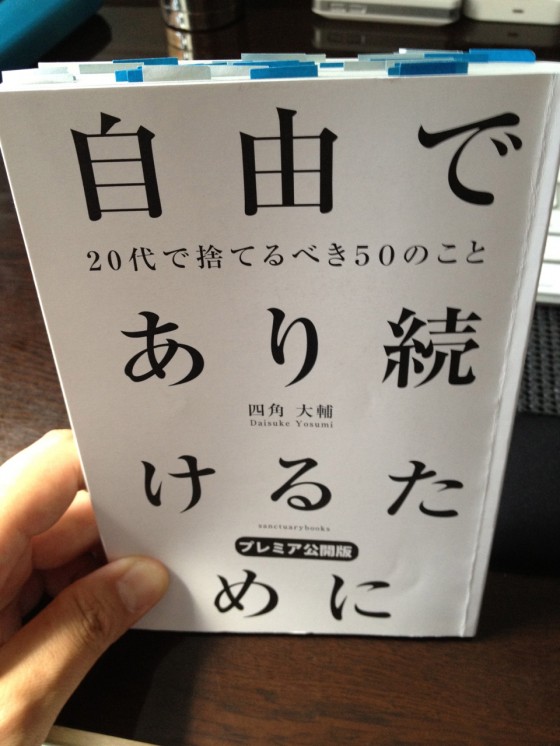 自由で
20代で捨てるべき50のこと
あり続
四角 大輔
Daisuke Yosumi
けるた
sanctuarybooks
プレミア公開版
めに